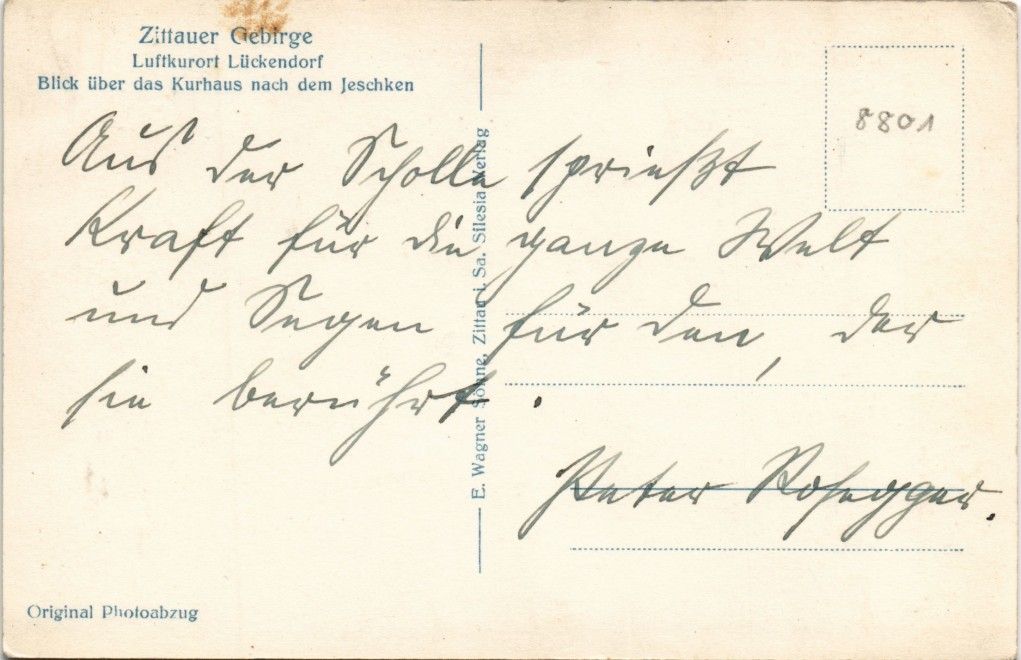 Zittauer Gebirge
Luftkurort Lückendorf
Blick über das Kurhaus nach dem Jeschken
8801
Aus der Scholle sprießt
Kraft für die ganze Welt
und Segen für den, der
sie berührt.
Peter Rosegger.
E. Wagner Söhne, Zittau i. Sa. Silesia-Verlag
Original Photoabzug